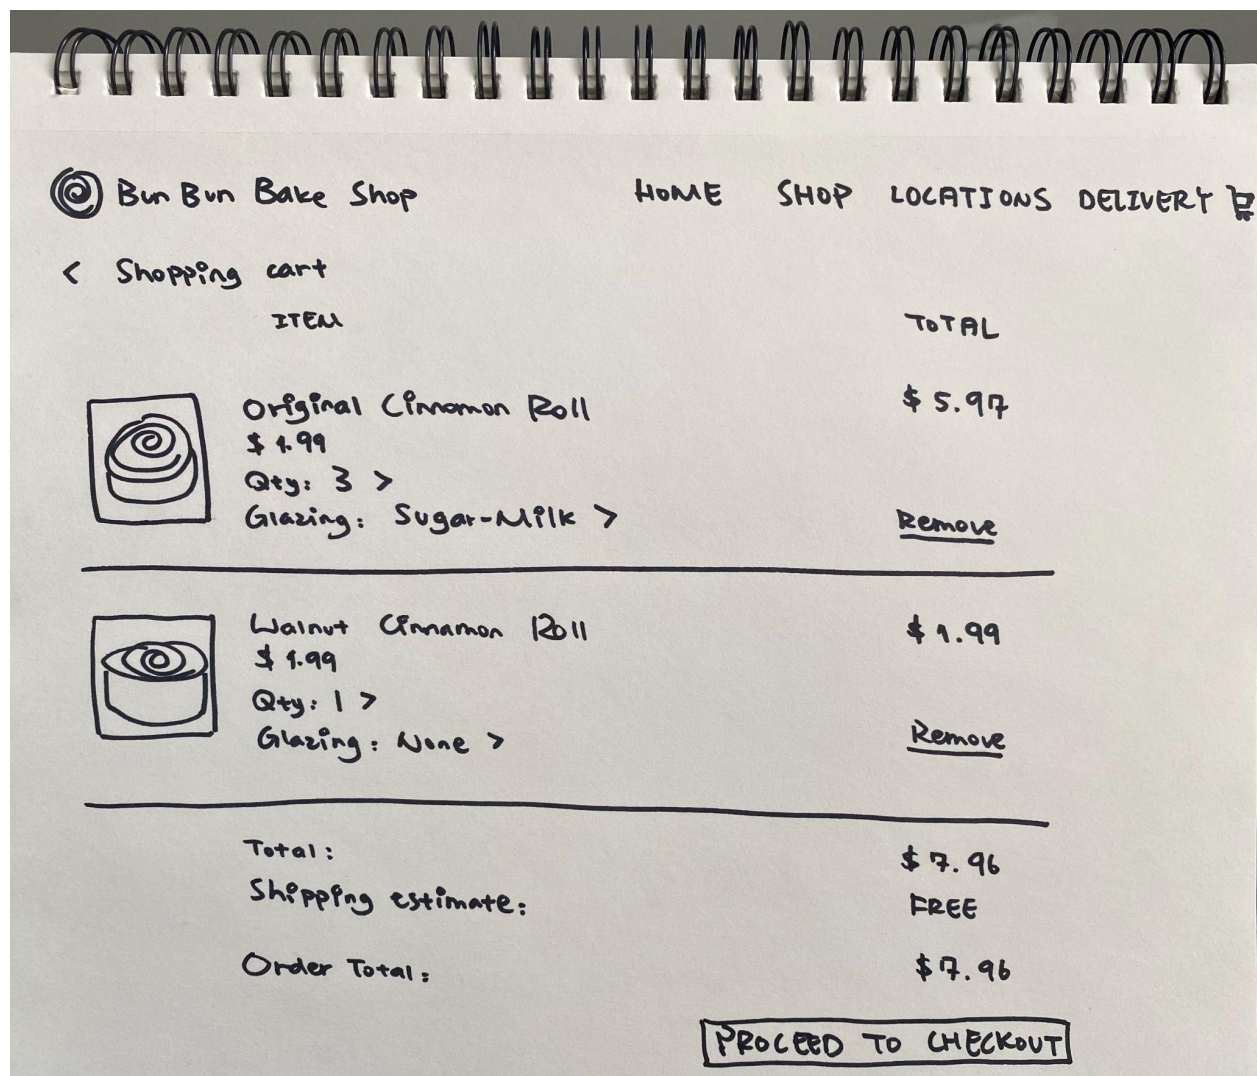 Bun Bun Bake Shop HOME SHOP LOCATIONS DELIVERY
< Shopping cart
ITEM TOTAL
Original Cinnamon Roll $5.97
$1.99
Qty: 3 >
Glazing: Sugar-Milk > Remove
Walnut Cinnamon Roll $1.99
$1.99
Qty: 1 >
Glazing: None > Remove
Total: $7.96
Shipping estimate: FREE
Order Total: $7.96
PROCEED TO CHECKOUT